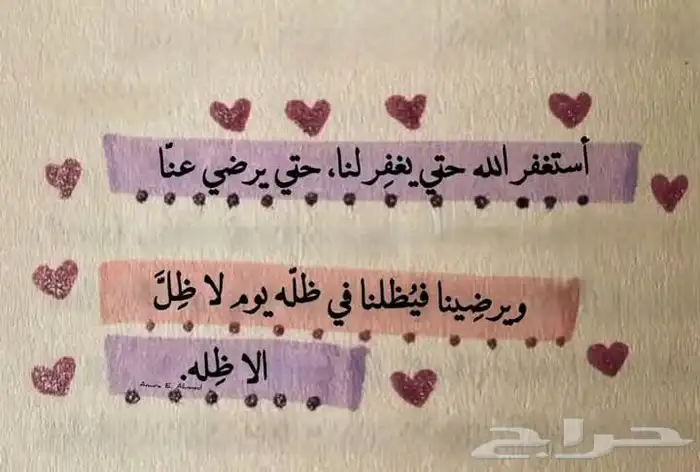 أستغفر الله حتي يغفِر لنا، حتي يرضي عنّا
ويرضِينا فيُظلنا في ظلّه يوم لا ظِلَّ
الا ظِله.
Amira E. Ahmed
حراج